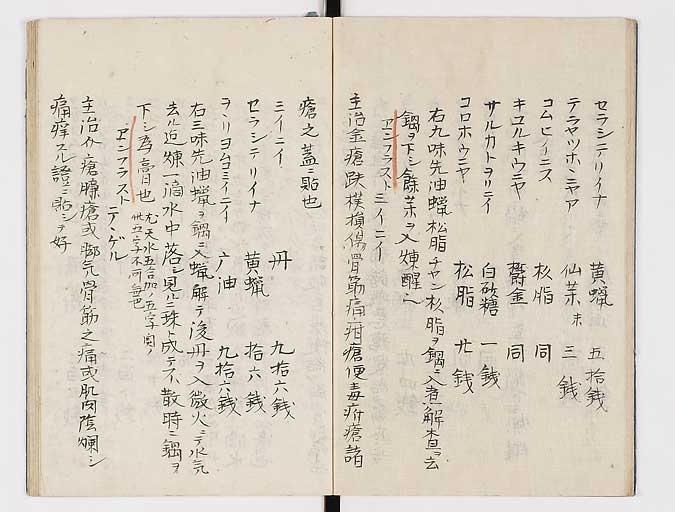 セラシテリイナ 黄蝋 五拾銭
テラヤツホシニヤア 仙茶 ホ 三銭
コムヒイニス 杦脂 同
キユルキウニヤ 欝金 同
サルカトヲリニイ 白砂糖 一銭
コロホウニヤ 松脂 廿銭
右九味先油蝋松脂チヤン杦脂ヲ鍋ニ入煮解査ヲ去
鍋ヲ下シ餘茶ヲ入煉醒ヘ
ヱンフラスト ミイニイ
主治金瘡跌模損傷骨筋痛疳瘡便毒疔瘡諸
瘡之蓋ニ貼也
ミイニイ 丹 九拾六銭
セラシテリイナ 黄蝋 拾六銭
ヲヽリヨムコミイニイ 油 九拾六銭
右三味先油蝋ヲ鍋ニ入蝋解テ後丹ヲ入微火ニテ水気
去ル迄煉一滴水中落シ見ルニ珠ト成テ不散時ニ鍋ヲ
下シ為膏月也 尤天水五合加ノ五字 卅五字不可無也
ヱンフラスト テンゲル
主治 瘡臁瘡或脚気骨筋之痛或肌肉蔭爛シ
痛痒スル證ニ貼シテ好